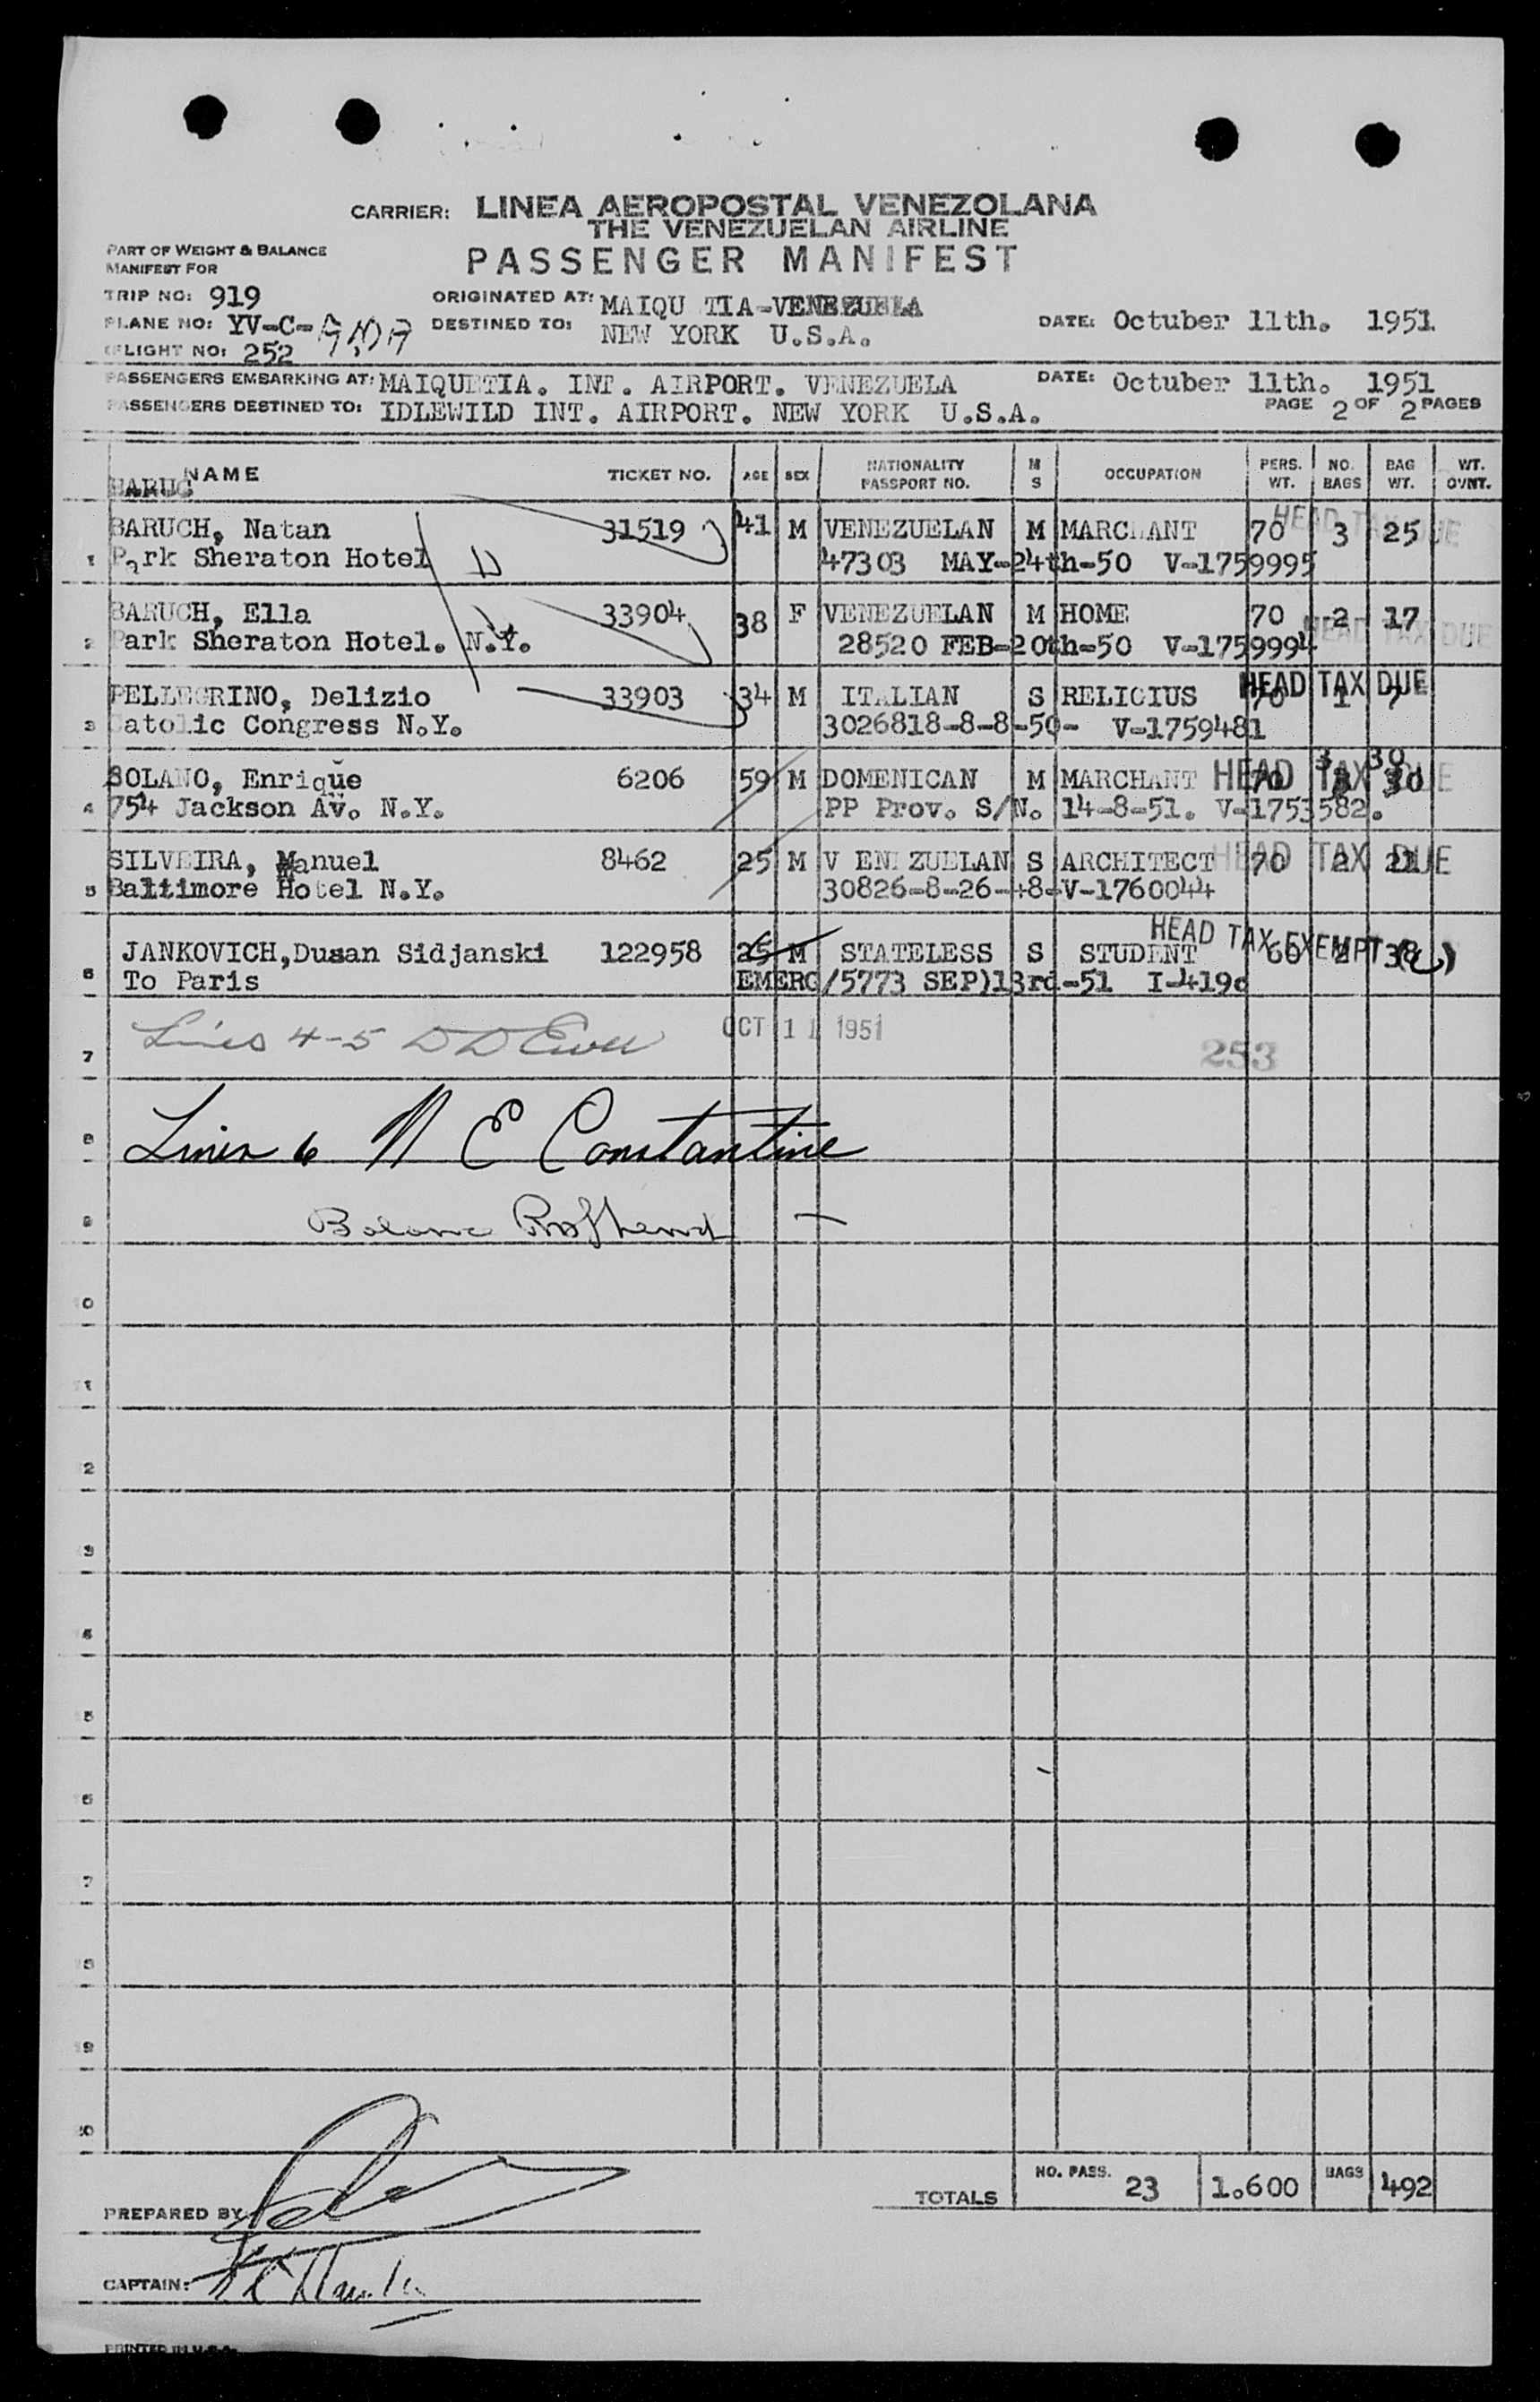 CARRIER: LINEA AEROPOSTAL VENEZOLANA
THE VENEZUELAN AIRLINE
PASSENGER MANIFEST
PART OF WEIGHT & BALANCE
MANIFEST FOR
TRIP NO: 919
PLANE NO: YV-C-
FLIGHT NO: 252
ORIGINATED AT: MAIQU TIA-VENEZUELA
DESTINED TO: NEW YORK U.S.A.
DATE: Octuber 11th. 1951
PASSENGERS EMBARKING AT: MAIQUETIA. INT. AIRPORT. VENEZUELA DATE: Octuber 11th. 1951
PASSENGERS DESTINED TO: IDLEWILD INT. AIRPORT. NEW YORK U.S.A. PAGE 2 OF 2 PAGES
NAME TICKET NO. AGE SEX NATIONALITY PASSPORT NO. M S OCCUPATION PERS. WT. NO. BAGS BAG WT. WT. OVNT.
BARUC
BARUCH, Natan 31519 41 M VENEZUELAN M MARCHANT 70 3 25 HEAD TAX DUE
1 Park Sheraton Hotel 47303 MAY-24th-50 V-1759995
BARUCH, Ella 33904 38 F VENEZUELAN M HOME 70 2 17
2 Park Sheraton Hotel. N.Y. 28520 FEB-20th-50 V-1759994 HEAD TAX DUE
PELLEGRINO, Delizio 33903 34 M ITALIAN S RELIGIUS 70 1 7 HEAD TAX DUE
3 Catolic Congress N.Y. 3026818-8-8-50- V-1759481
3 30
SOLANO, Enrique 6206 59 M DOMENICAN M MARCHANT 70 3 30 HEAD TAX DUE
4 754 Jackson Av. N.Y. PP Prov. S/N. 14-8-51. V-1753582.
SILVEIRA, Manuel 8462 25 M V ENEZUELAN S ARCHITECT 70 2 21 HEAD TAX DUE
5 Baltimore Hotel N.Y. 30826-8-26-48-V-1760044
HEAD TAX EXEMPT
JANKOVICH,Dusan Sidjanski 122958 25 M STATELESS S STUDENT 60 2 38
6 To Paris EMERG/5773 SEP)13rd-51 I-419c
Lines 4-5 OCT 11 1951
7 253
8 Lines 6 N E Constantine
9
10
11
12
13
14
15
16
17
18
19
20
TOTALS NO. PASS. 23 1.600 BAGS 492
PREPARED BY
CAPTAIN:
PRINTED IN U.S.A.